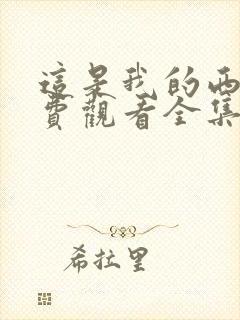 這是我的西
費觀看全集
希拉里